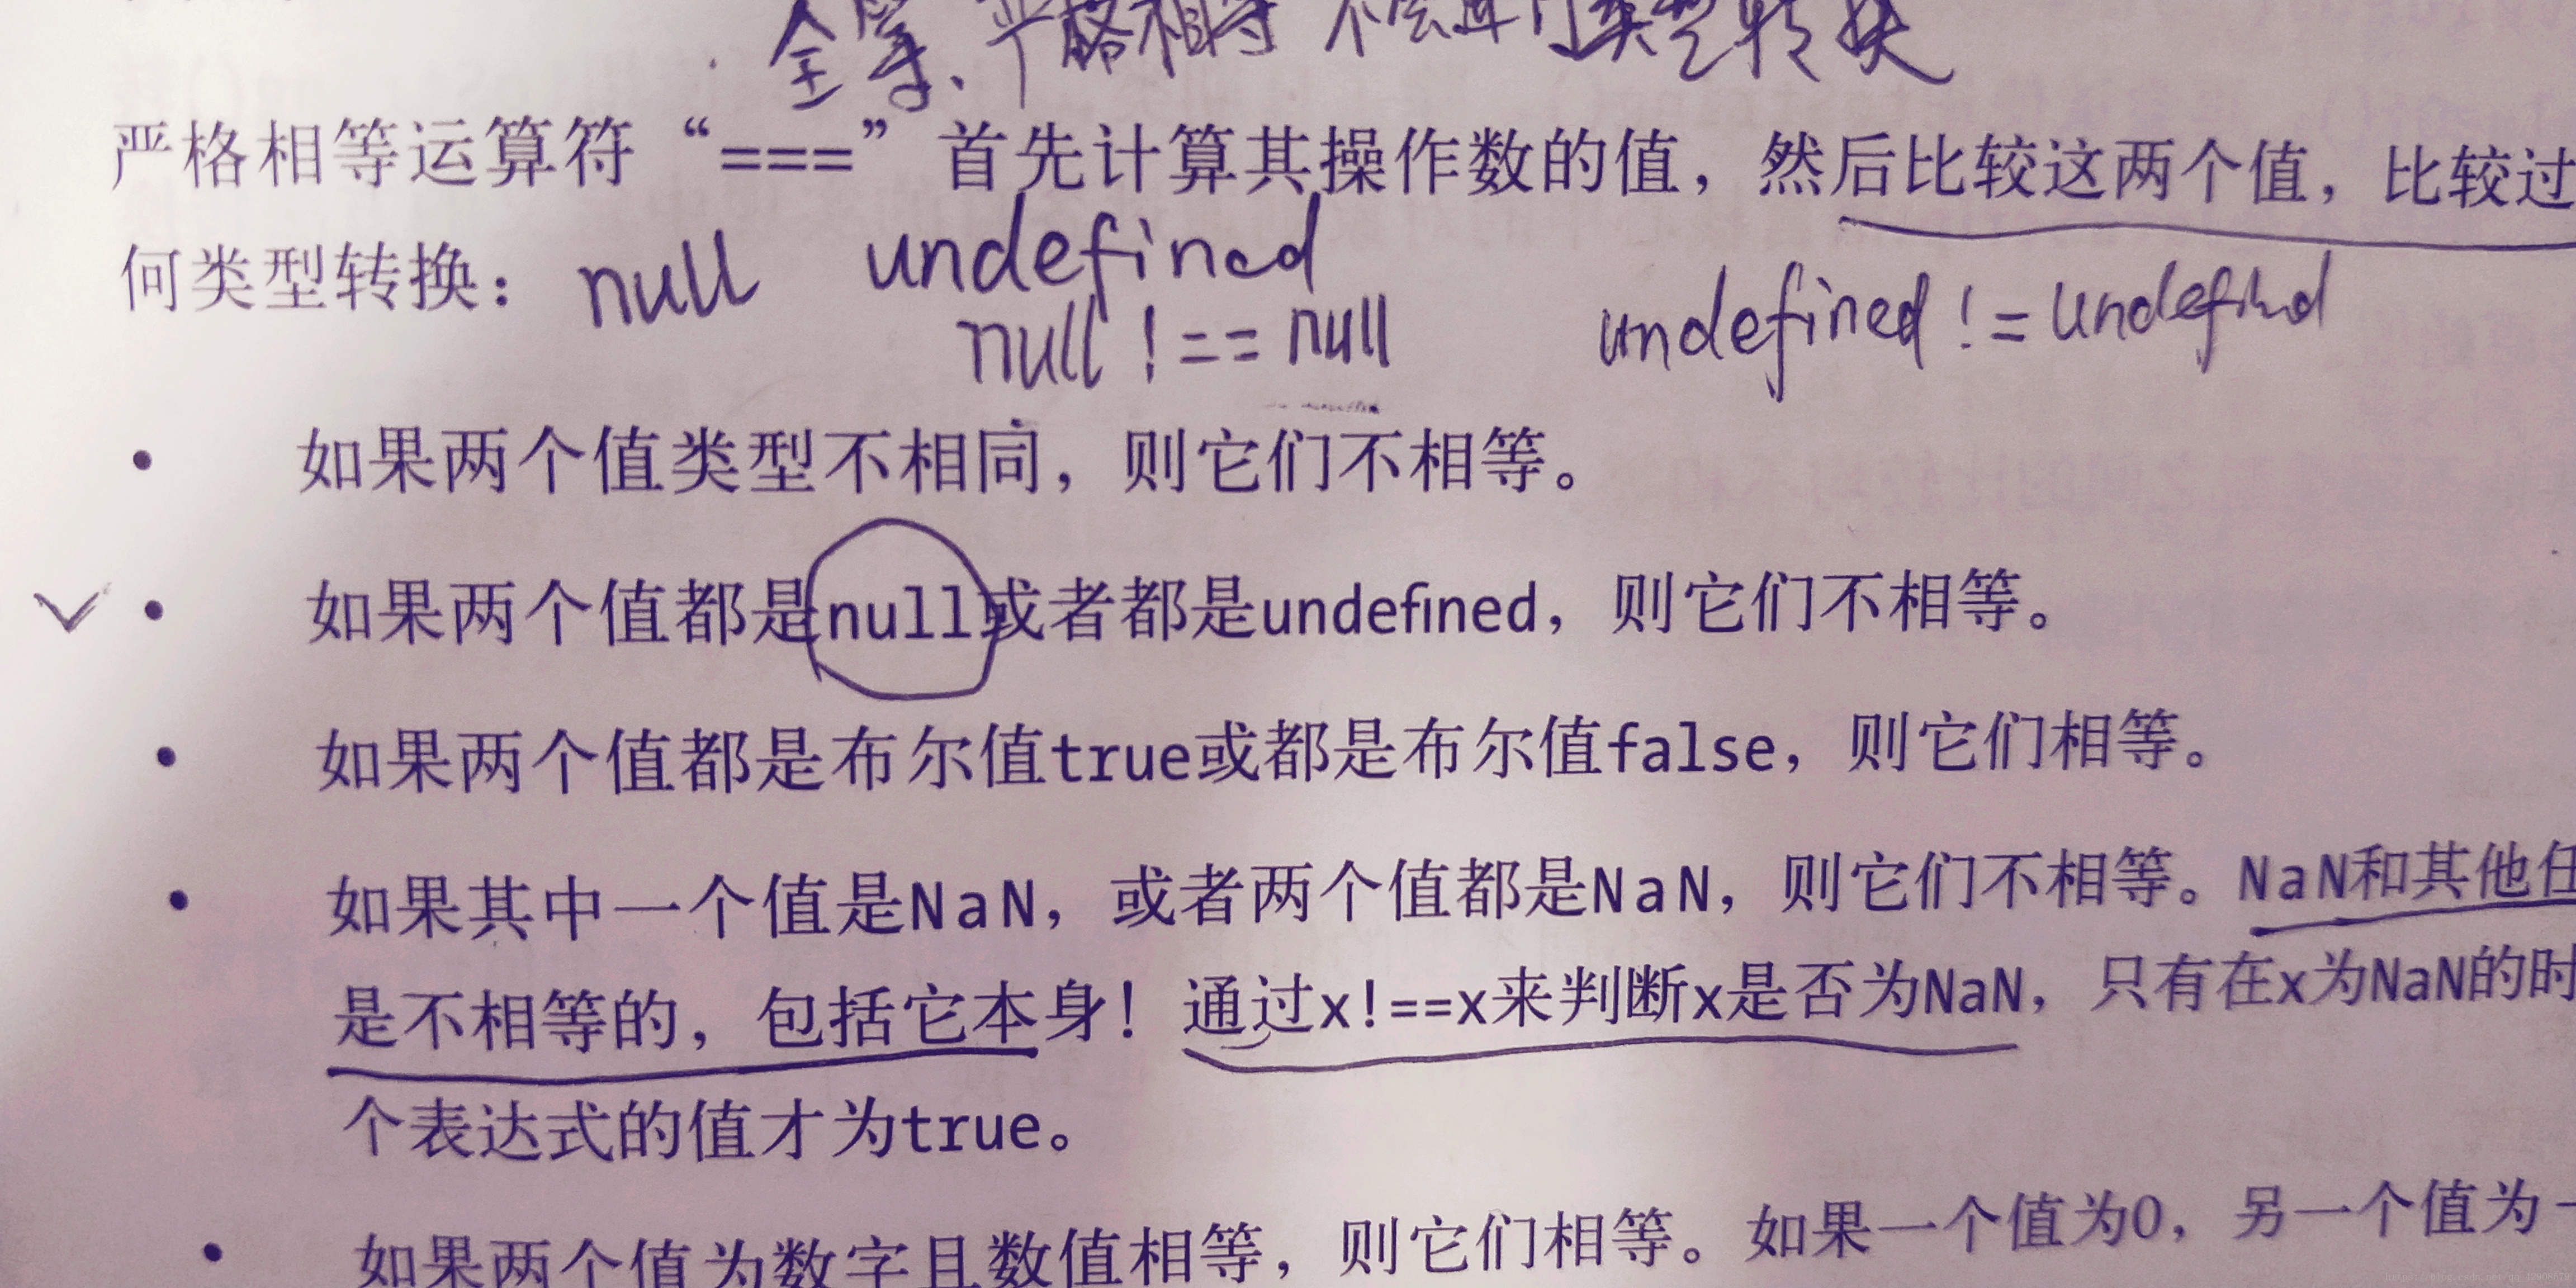 全等、严格相等 不会进行类型转换
严格相等运算符“===”首先计算其操作数的值，然后比较这两个值，比较过
何类型转换： null undefined
null !== null undefined != undefind
• 如果两个值类型不相同，则它们不相等。
• 如果两个值都是null或者都是undefined，则它们不相等。
• 如果两个值都是布尔值true或都是布尔值false，则它们相等。
• 如果其中一个值是NaN，或者两个值都是NaN，则它们不相等。NaN和其他任
是不相等的，包括它本身！通过x!==x来判断x是否为NaN，只有在x为NaN的时
个表达式的值才为true。
• 如果两个值为数字且数值相等，则它们相等。如果一个值为0，另一个值为